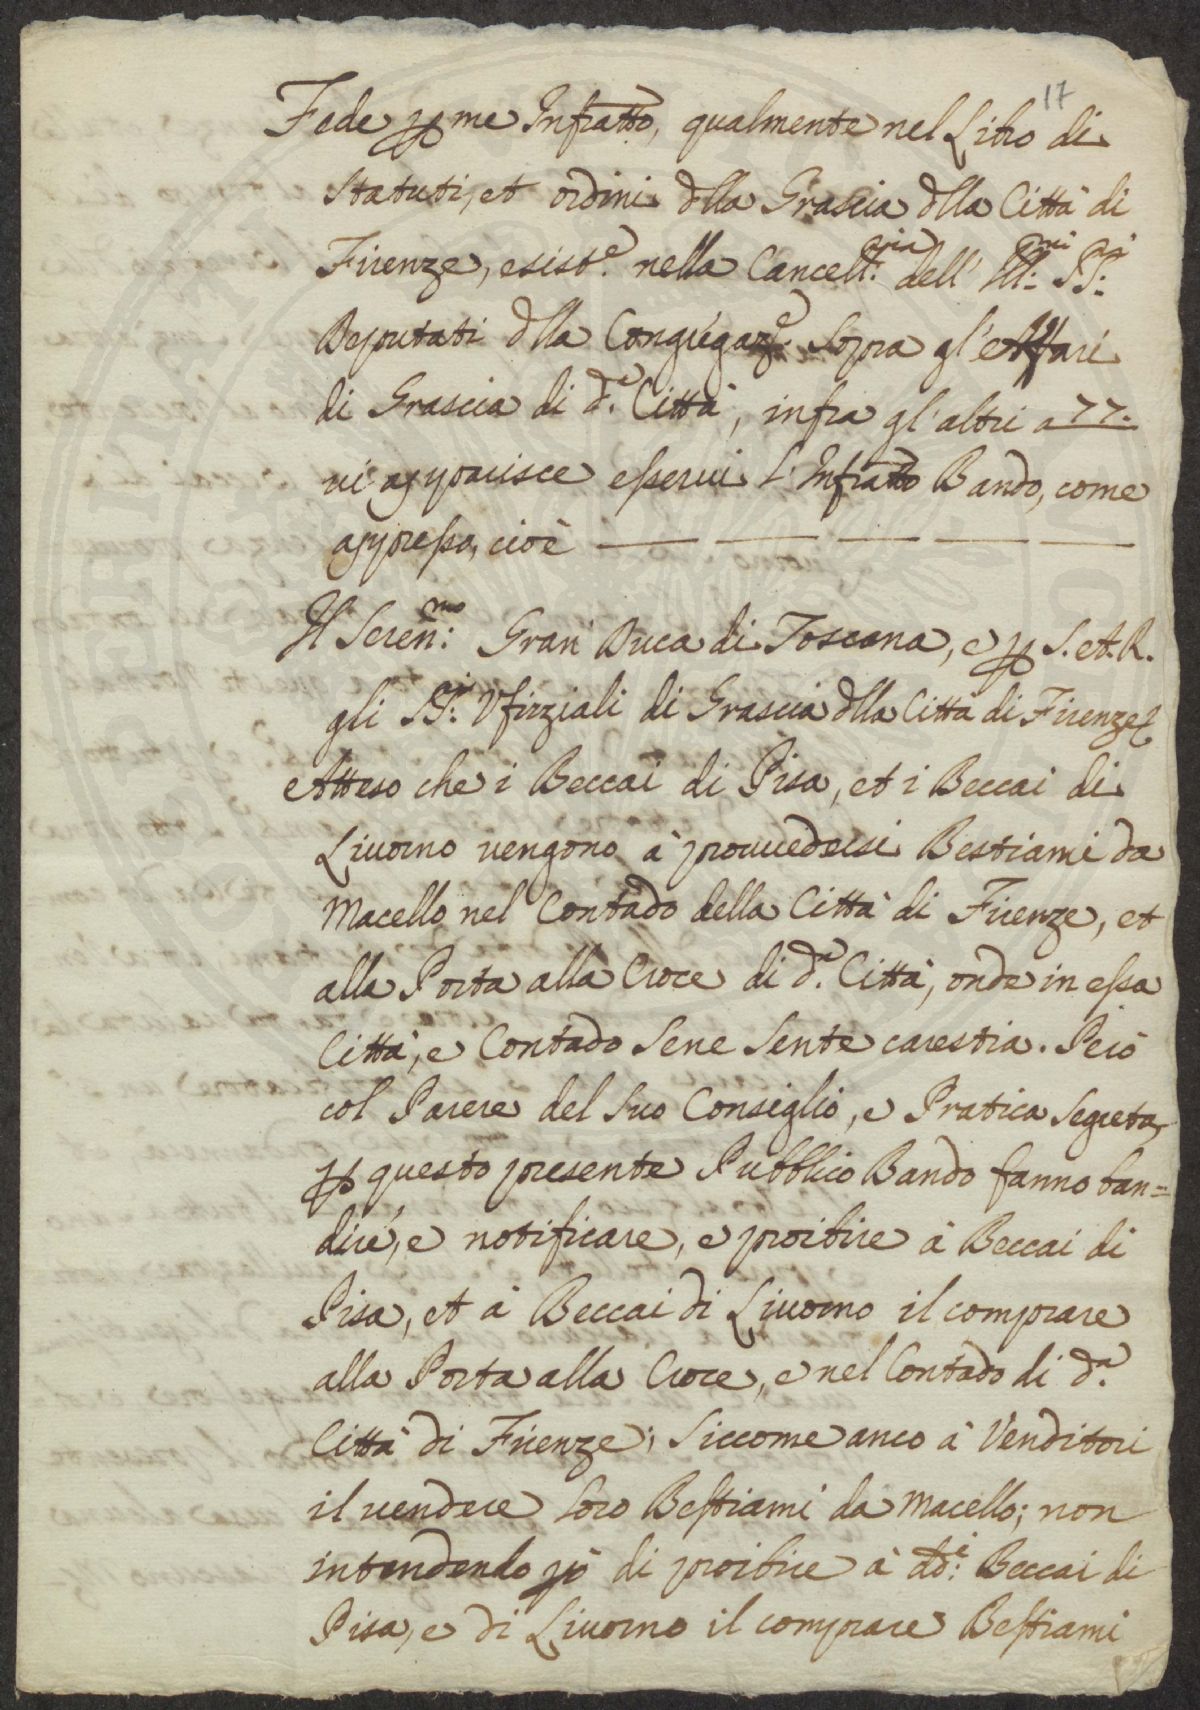 17
Fede p me Infratto, qualmente nel Libro di
Statuti, et ordini dlla Grascia dlla Città di
Firenze, esist.e nella Cancell.ria dell' Ill.mi SS.i
Deputati dlla Congregaz.e Sopra gl'Affari
di Grascia di d.a Città, infra gl'altri a 77.
vi apparisce esservi l'Infratto Bando, come
appresso, cioè — — — — —
Il Seren.mo Gran Duca di Toscana, e p S. A. R.
gli SS.i Vfizziali di Grascia dlla Città di Firenze
Atteso che i Beccai di Pisa, et i Beccai di
Liuorno vengono à prouuedersi Bestiami da
Macello nel Contado della Città di Firenze, et
alla Porta alla Croce di d.a Città, onde in essa
Città, e Contado Sene Sente carestia. Però
col Parere del Suo Consiglio, e Pratica Segreta,
p questo presente Pubblico Bando fanno ban=
dire, e notificare, e proibire à Beccai di
Pisa, et à Beccai di Liuorno il comprare
alla Porta alla Croce, e nel Contado di d.a
Città di Firenze; Siccome anco à Venditori
il vendere loro Bestiami da Macello; non
intendendo pò di proibire à dd.i Beccai di
Pisa, e di Liuorno il comprare Bestiami